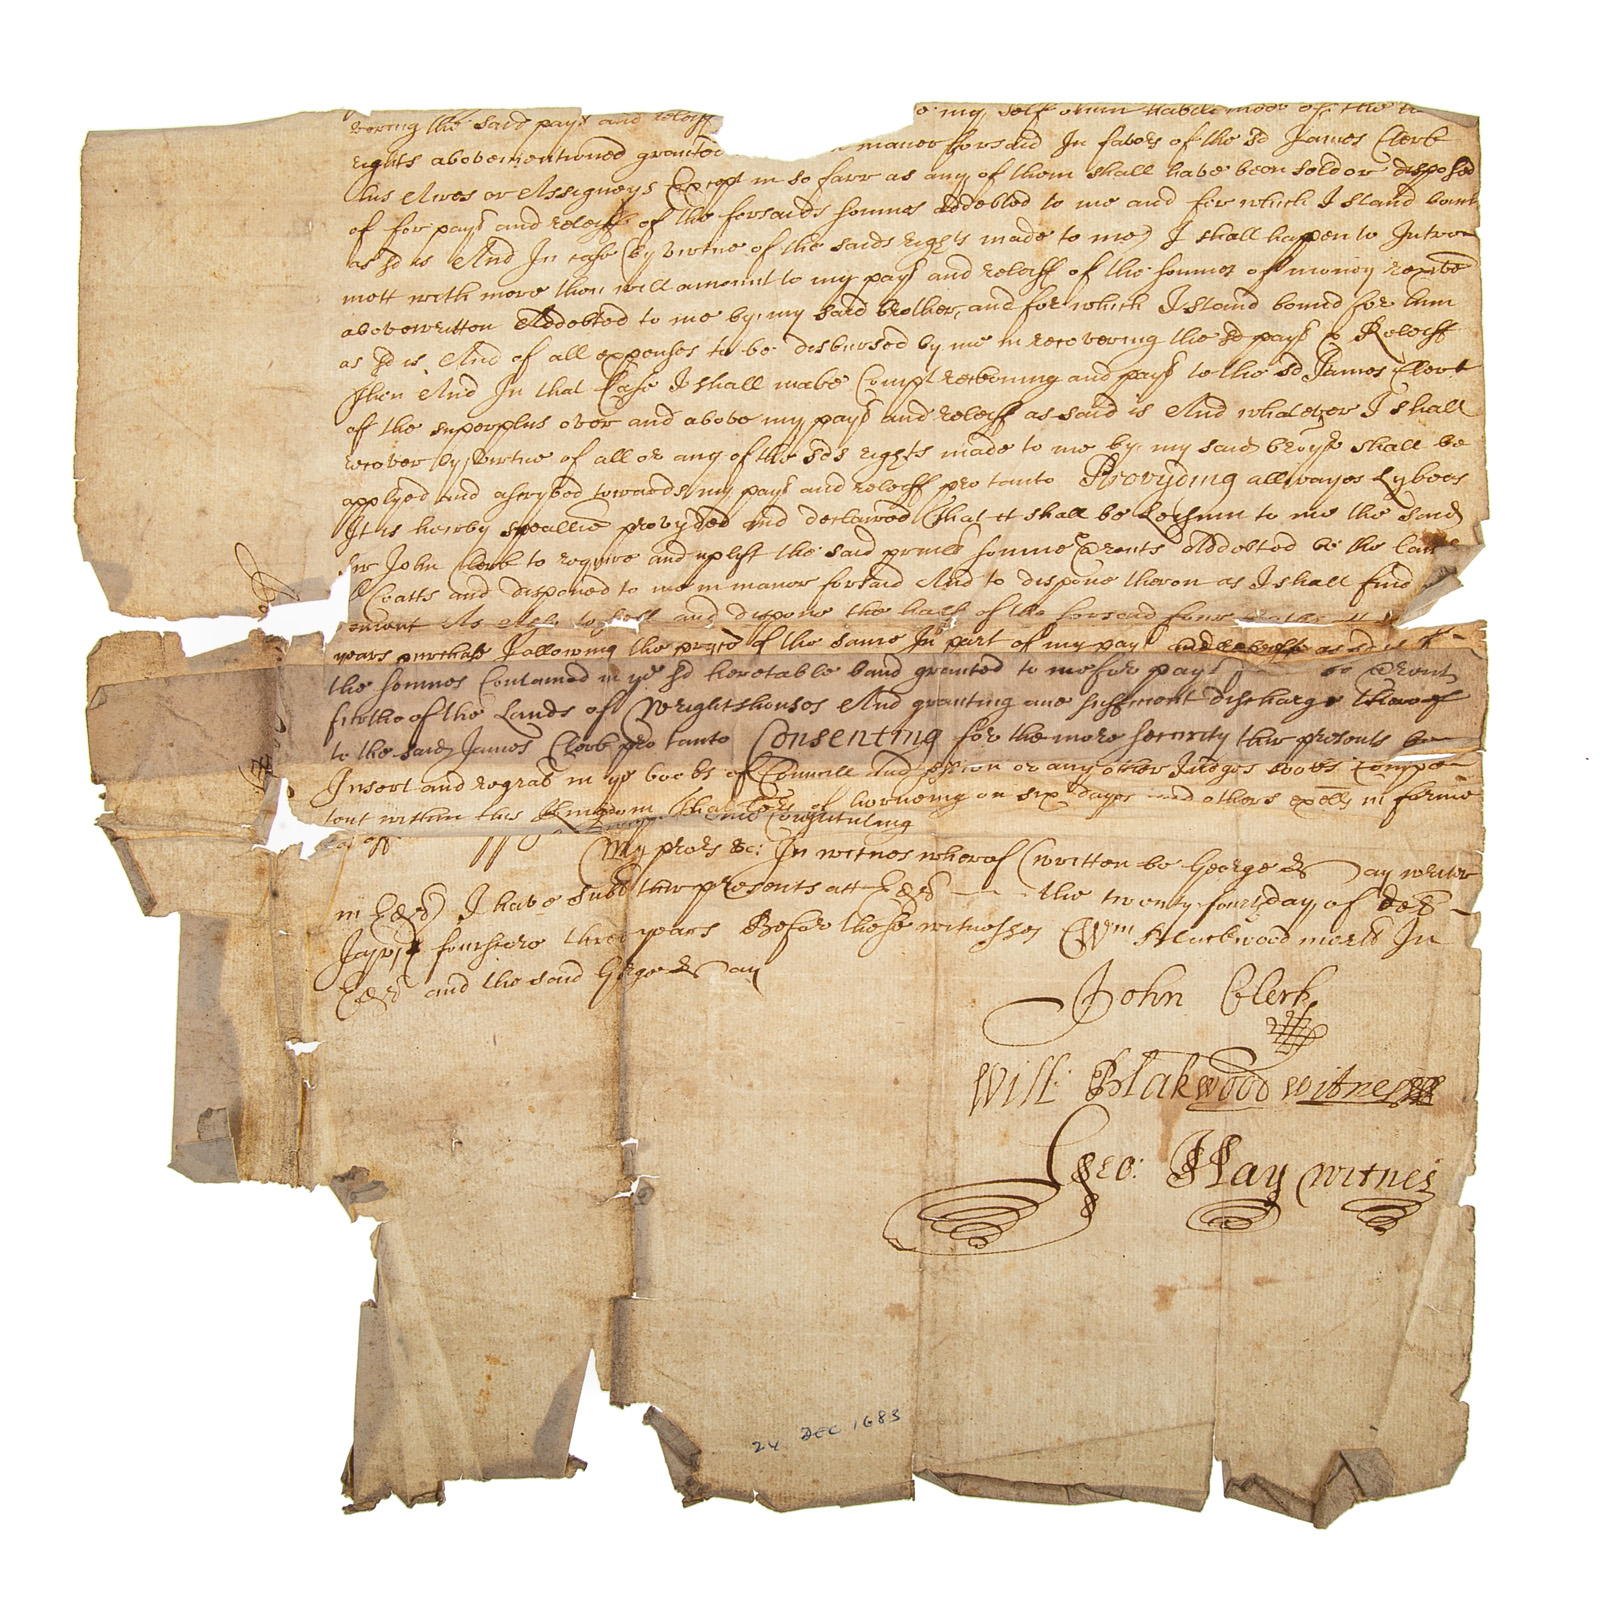 vering the said payt and releiff my self
rights abovementioned granted maner forsaid In favors of the sd James Clerk
his Aires or Assigneys Except in so farr as any of them shall have been sold or disposed
of for payt and releiff of the forsaids soumes addebted to me and for which I stand bound
as sd is And In case (by virtue of the saids rights made to me) I shall happen to Intro
mett with more then will amount to my payt and releiff of the soumes of money
abovewritten Addebted to me by my said brother, and for which I stand bound for him
as sd is, And of all expenses to be disbursed by me in recovering the sd payt & Releiff
Then And In that Case I shall make Compt reckoning and payt to the sd James Clerk
of the superplus over and above my payt and releiff as said is And whatever I shall
recover by virtue of all or any of the sds rights made to me by my said broyr shall be
applyed and ascrybed towards my payt and releiff pro tanto Provyding allwayes Lykeas
It is hereby speallie provyded and declaired That it shall be Leisum to me the said
Sir John Clerk to require and uplift the said prinll soume & rents Addebted be the
Coatts and disponed to me in maner forsaid And to dispone theron as I shall find
and dispone the half of the forsaid four
years purchass Allowing the pryce of the same In part of my payt and releiff as sd is of
the soumes Contained in ye sd heretable band granted to me for payt
furthe of the Lands of Wrightshouses And granting ane sufficient discharge thereof
to the said James Clerk pro tanto Consenting for the more security thir presents be
Insert and regrat in ye books of Councill And Session or any other Judges books Compe
tent within this Kingdom That Lres of horneing on six dayes and others exells in forme
Constituting
My prors &c: In witnes wherof (written be George Hay writer
in Edr) I have subt thir presents att Edr the twenty fourt day of decr
Jajvjc fourscore three years Before these witnesses Wm Blackwood mercht In
Edr and the said George Hay
John Clerk
Will: Blakwood witness
Geo: Hay witnes
24 DEC 1683